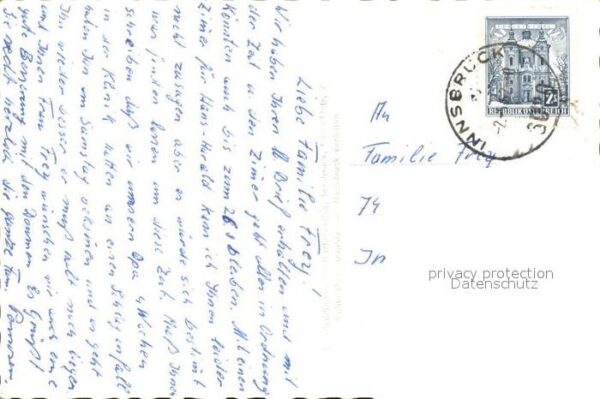 Liebe Familie Frey!
Wir haben Ihren Brief erhalten und mit
der Zeit u den Zimer geht alles in Ordnung
könnten auch bis zum 28 bleiben. Mit einem
Zimer für Hans-Harald kann ich Ihnen leider
nicht zusagen aber es würde sich bestimt
was finden lassen um diese Zeit. Muß Ihnen
schreiben daß wir unseren Opa 4 Wochen
in der Klinik hatten an einen Schlaganfall
haben Ihn am Samstag und es geht
Ihm wieder besser er muß halt noch liegen
und Ihnen Frau Frey wünschen wir auch eine
gute Besserung mit den Es Grüßt
Sie recht herzlich die ganze Fam.
An
Familie Frey
74
In
INNSBRUCK
2
REPUBLIK ÖSTERREICH
privacy protection
Datenschutz